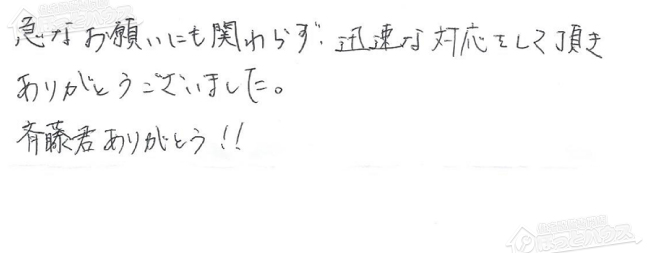 急なお願いにも関わらず、迅速な対応をして頂き
ありがとうございました。
斉藤君ありがとう!!